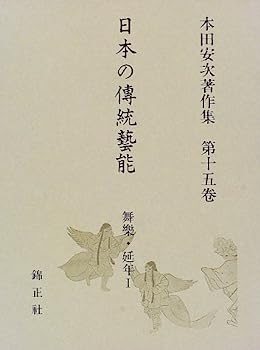 本田安次著作集 第十五卷
日本の傳統藝能
舞樂・延年Ⅰ
錦正社